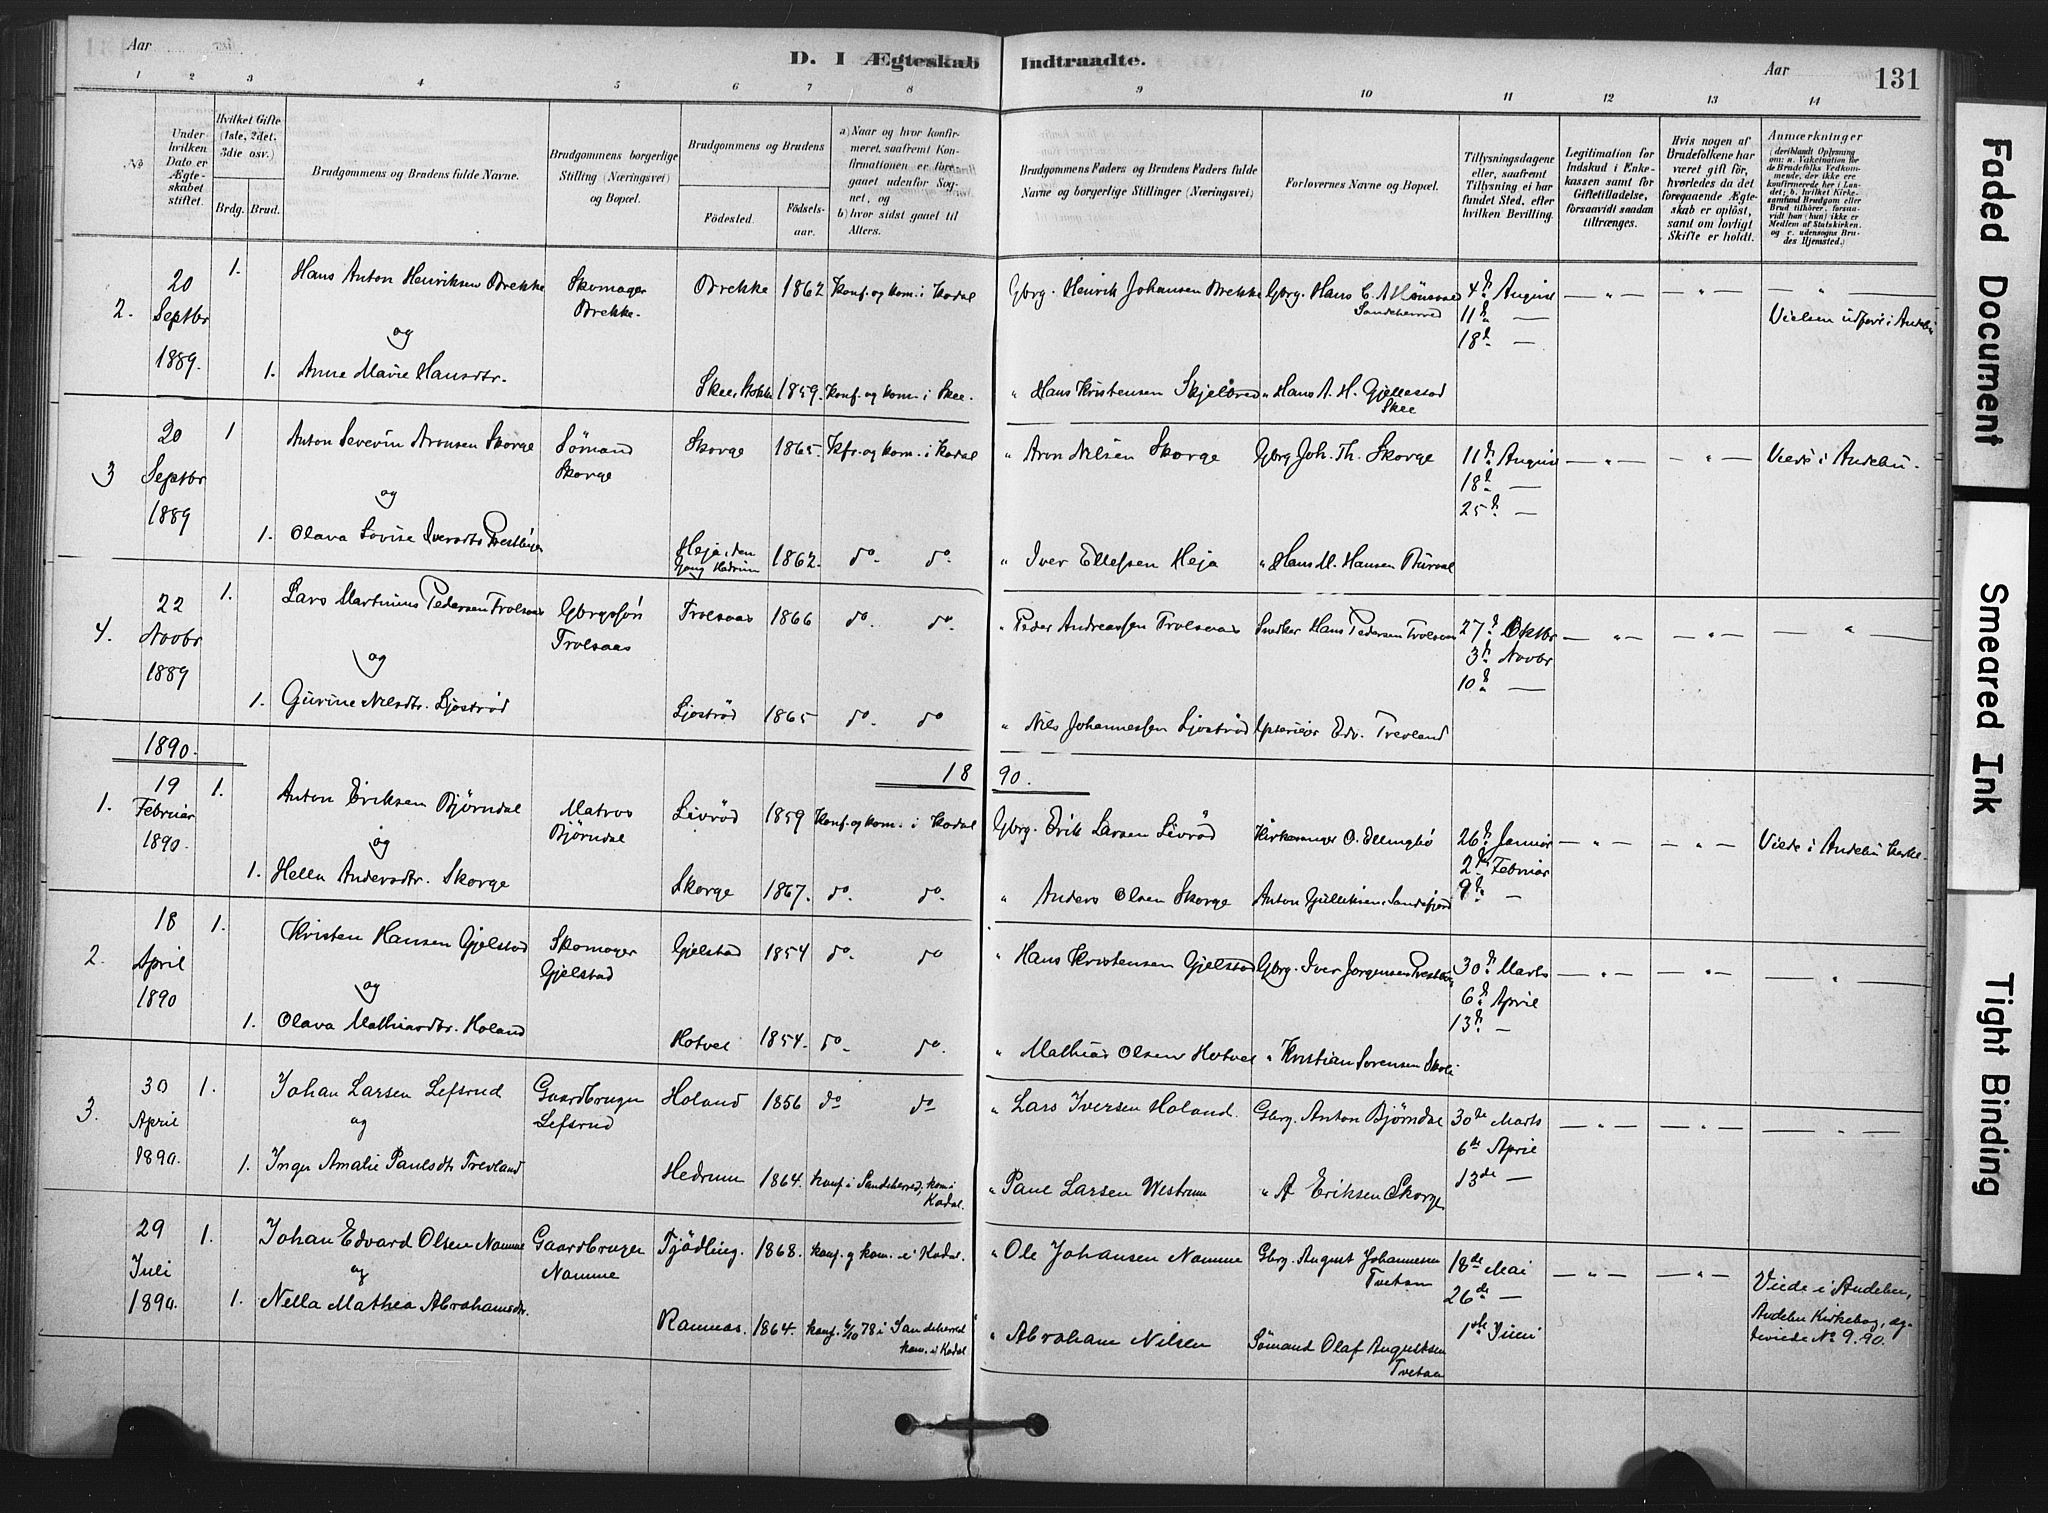 Aar
D. I Ægteskab Indtraadte.
Aar
131
1 2 3 4 5 6 7 8 9 10 11 12 13 14
No
Under hvilken Dato er Ægteskabet stiftet.
Hvilket Gifte (1ste, 2det, 3die osv.)
Brdg. Brud.
Brudgommens og Brudens fulde Navne.
Brudgommens borgerlige Stilling (Næringsvei) og Bopæl.
Brudgommens og Brudens
Fødested. Fødselsaar.
a) Naar og hvor konfirmeret, saafremt Konfirmationen er foregaaet udenfor Sognet, og
b) hvor sidst gaaet til Alters.
Brudgommens Faders og Brudens Faders fulde Navne og borgerlige Stillinger (Næringsvei)
Forlovernes Navne og Bopæl.
Tillysningsdagene eller, saafremt Tillysning ei har fundet Sted, efter hvilken Bevilling.
Legitimation for Indskud i Enkekassen samt for Giftetilladelse, forsaavidt saadan tiltrænges.
Hvis nogen af Brudefolkene har været gift før, hvorledes da det foregaaende Ægteskab er opløst, samt om lovligt Skifte er holdt.
Anmærkninger
(deriblandt Oplysning om: a. Vakcination for de Brudefolks Vedkommende, der ikke ere konfirmerede her i Landet; b. hvilket Kirkesamfund Brudgom eller Brud tilhører, forsaavidt han (hun) ikke er Medlem af Statskirken, og c. udensogns Brudes Hjemsted.)
2. 20 Septbr 1889. 1. Hans Anton Henriksen Brekke Skomager Brekke. Brekke 1862 Konf. og kom. i Kodal Gbrg. Henrik Johansen Brekke Gbrg. Hans C. Sandeherred 4de August — " — — " — "
11te — Vielsen udført i Andebu
18de —
og
1. Anne Marie Hansdtr. Skee, 1859. Konf. og kom. i Skee. " Hans Kristensen " Hans A. H. Gjellestad Skee
3 20 Septbr 1889 1 Anton Severin Aronsen Skorge Sømand Skorge Skorge 1865. Kfr. og kom. i Kodal " Aron Nilsen Skorge Gbrg Joh. Th. Skorge 11te August — " — — " — Viede i Andebu.
18de —
25de —
og
1. Olava Lovise Iversdtr Heja, den Gang Hedrum 1862. do. do. " Iver Ellefsen Heja " Hans M. Hansen
4. 22 Novbr 1889 1. Lars Martinius Pedersen Trolsaas Gbrgssøn Trolsaas Trolsaas 1866 do. do. " Peder Andreassen Trolsaas Hans Pedersen Trolsaas 27de Oktbr — " — — " — — " —
3de Novbr
10de —
og
1. Gurine Nilsdtr. Ljøstrød Ljøstrød 1865 do. do " Nils Johannessen Ljøstrød Edv. Trevland
1890.
18 90.
1. 19 Februar 1890. 1. Anton Eriksen Bjørndal Matros Bjørndal Livrød 1859 Konf. og kom. i Kodal Gbrg. Erik Larsen Livrød Kirkesanger O. Ellingbø 26de Januar — " — — " — Viede i Andebu Kirke.
2den Februar
9de —
og
1. Hella Andersdtr. Skorge Skorge 1867. do. do. " Anders Olsen Skorge Anton Gulliksen, Sandefjord
2. 18 April 1890 1. Kristen Hansen Gjelstad Skomager Gjelstad Gjelstad 1854 do. do " Hans Kristensen Gjelstad Gbrg. Iver Jørgensen 30te Marts — " — — " — — " —
6te April
13de —
og
1. Olava Mathiasdtr. Holand Hotvet 1854. do. do. " Mathias Olsen Hotvet " Kristian Sørensen
3. 30 April 1890. 1. Johan Larsen Lefsrud Gaardbruger Lefsrud Holand 1856 do do " Lars Iversen Holand. Gbrg. Anton Bjørndal 30de Marts — " — — " — — " —
6te April
13de —
og
1. Inger Amalie Paulsdtr Trevland Hedrum 1864. konf. i Sandeherred, kom. i Kodal. " Paul Larsen Westrum " A Eriksen Skorge
29 Juli 1890. 1. Johan Edvard Olsen Namme Gaardbruger Namme Tjødling. 1868. konf. og kom. i Kodal. " Ole Johansen Namme Gbrg. August Johannesen Tvetan 18de Mai — " — — " — Viede i Andebu,
26de — Andebu Kirkebog, egteviede No 9.90.
1ste Juni
og
1. Nella Mathea Abrahamsdtr. Ramnæs. 1864. konf. 6/10 78 i Sandeherred kom. i Kodal " Abraham Nilsen Sømand Olaf Augustsen Tvetan
Faded Document
Smeared Ink
Tight Binding